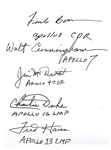 Frank Borman
Apollo 8 CDR
Walt Cunningham
APOLLO 7
Jim McDivitt
APOLLO 9 CDR
Charlie Duke
APOLLO 16 LMP
Fred Haise
APOLLO 13 LMP